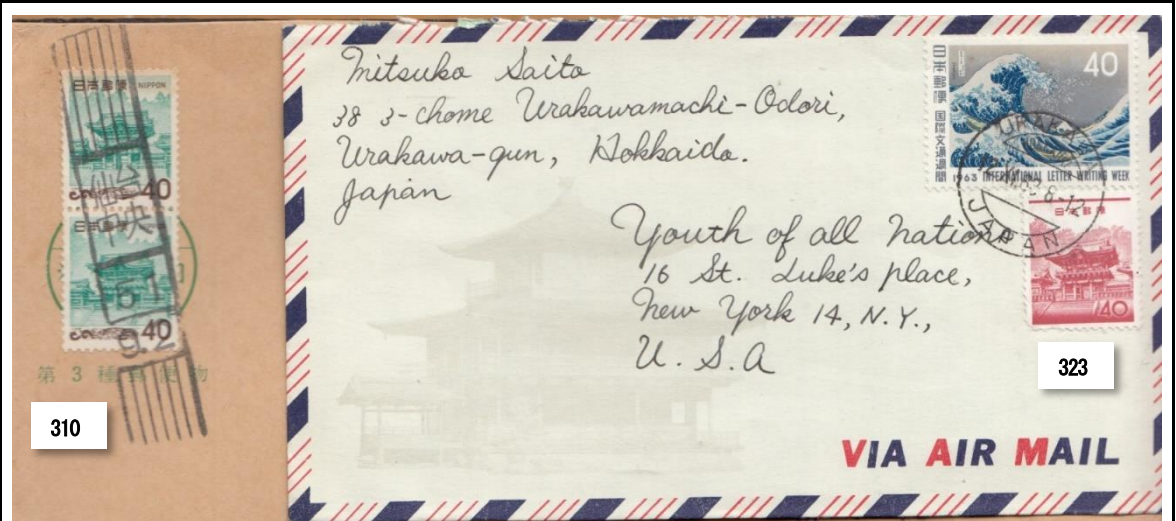 日本郵便 NIPPON
40
仙台中央
日本郵便
51
9.2
40
第3種郵便物
310
Mitsuko Saito
38 3-chome Urakawamachi-Odori,
Urakawa-gun, Hokkaido.
Japan
Youth of all Nations
16 St. Luke's place,
New York 14, N.Y.,
U. S. A
日本郵便 国際文通週間
40
1963 INTERNATIONAL LETTER-WRITING WEEK
URAKAWA
63. 8-12
JAPAN
日本郵便
40
323
VIA AIR MAIL